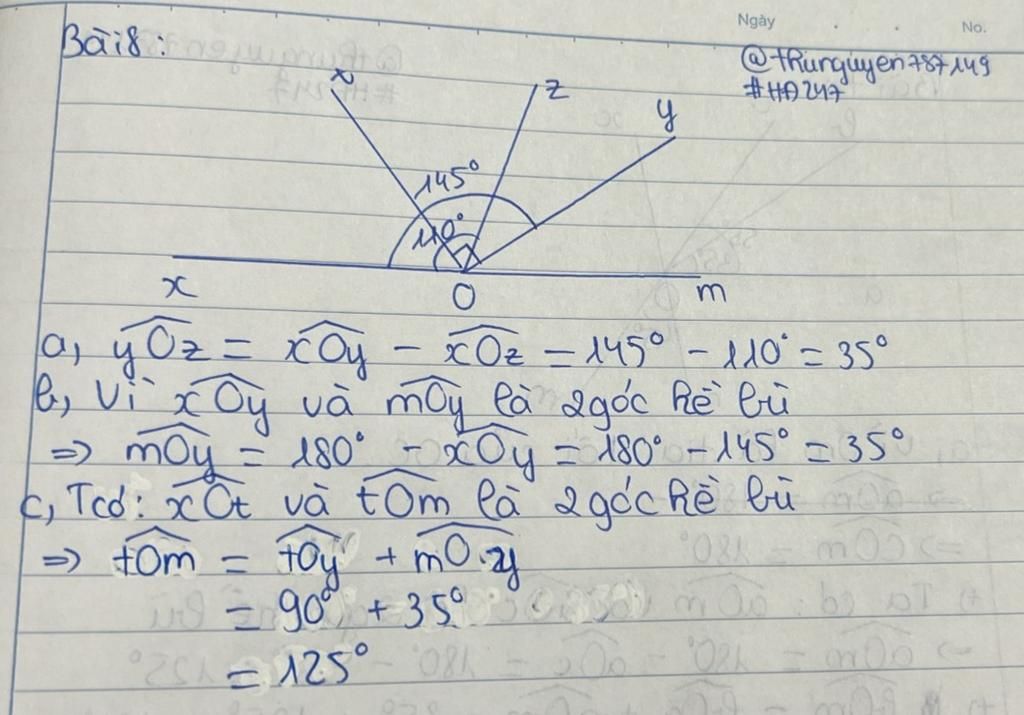 Ngày No.
Bài8:
@thunguyen787149
#HĐ247
x z y
145°
110°
x O m
a, yOz = xOy - xOz = 145° - 110° = 35°
b, Vì xOy và mOy là 2góc kề bù
=> mOy = 180° - xOy = 180° - 145° = 35°
c, Tcó: xOt và tOm là 2góc kề bù
=> tOm = tOy + mOy
= 90° + 35°
= 125°